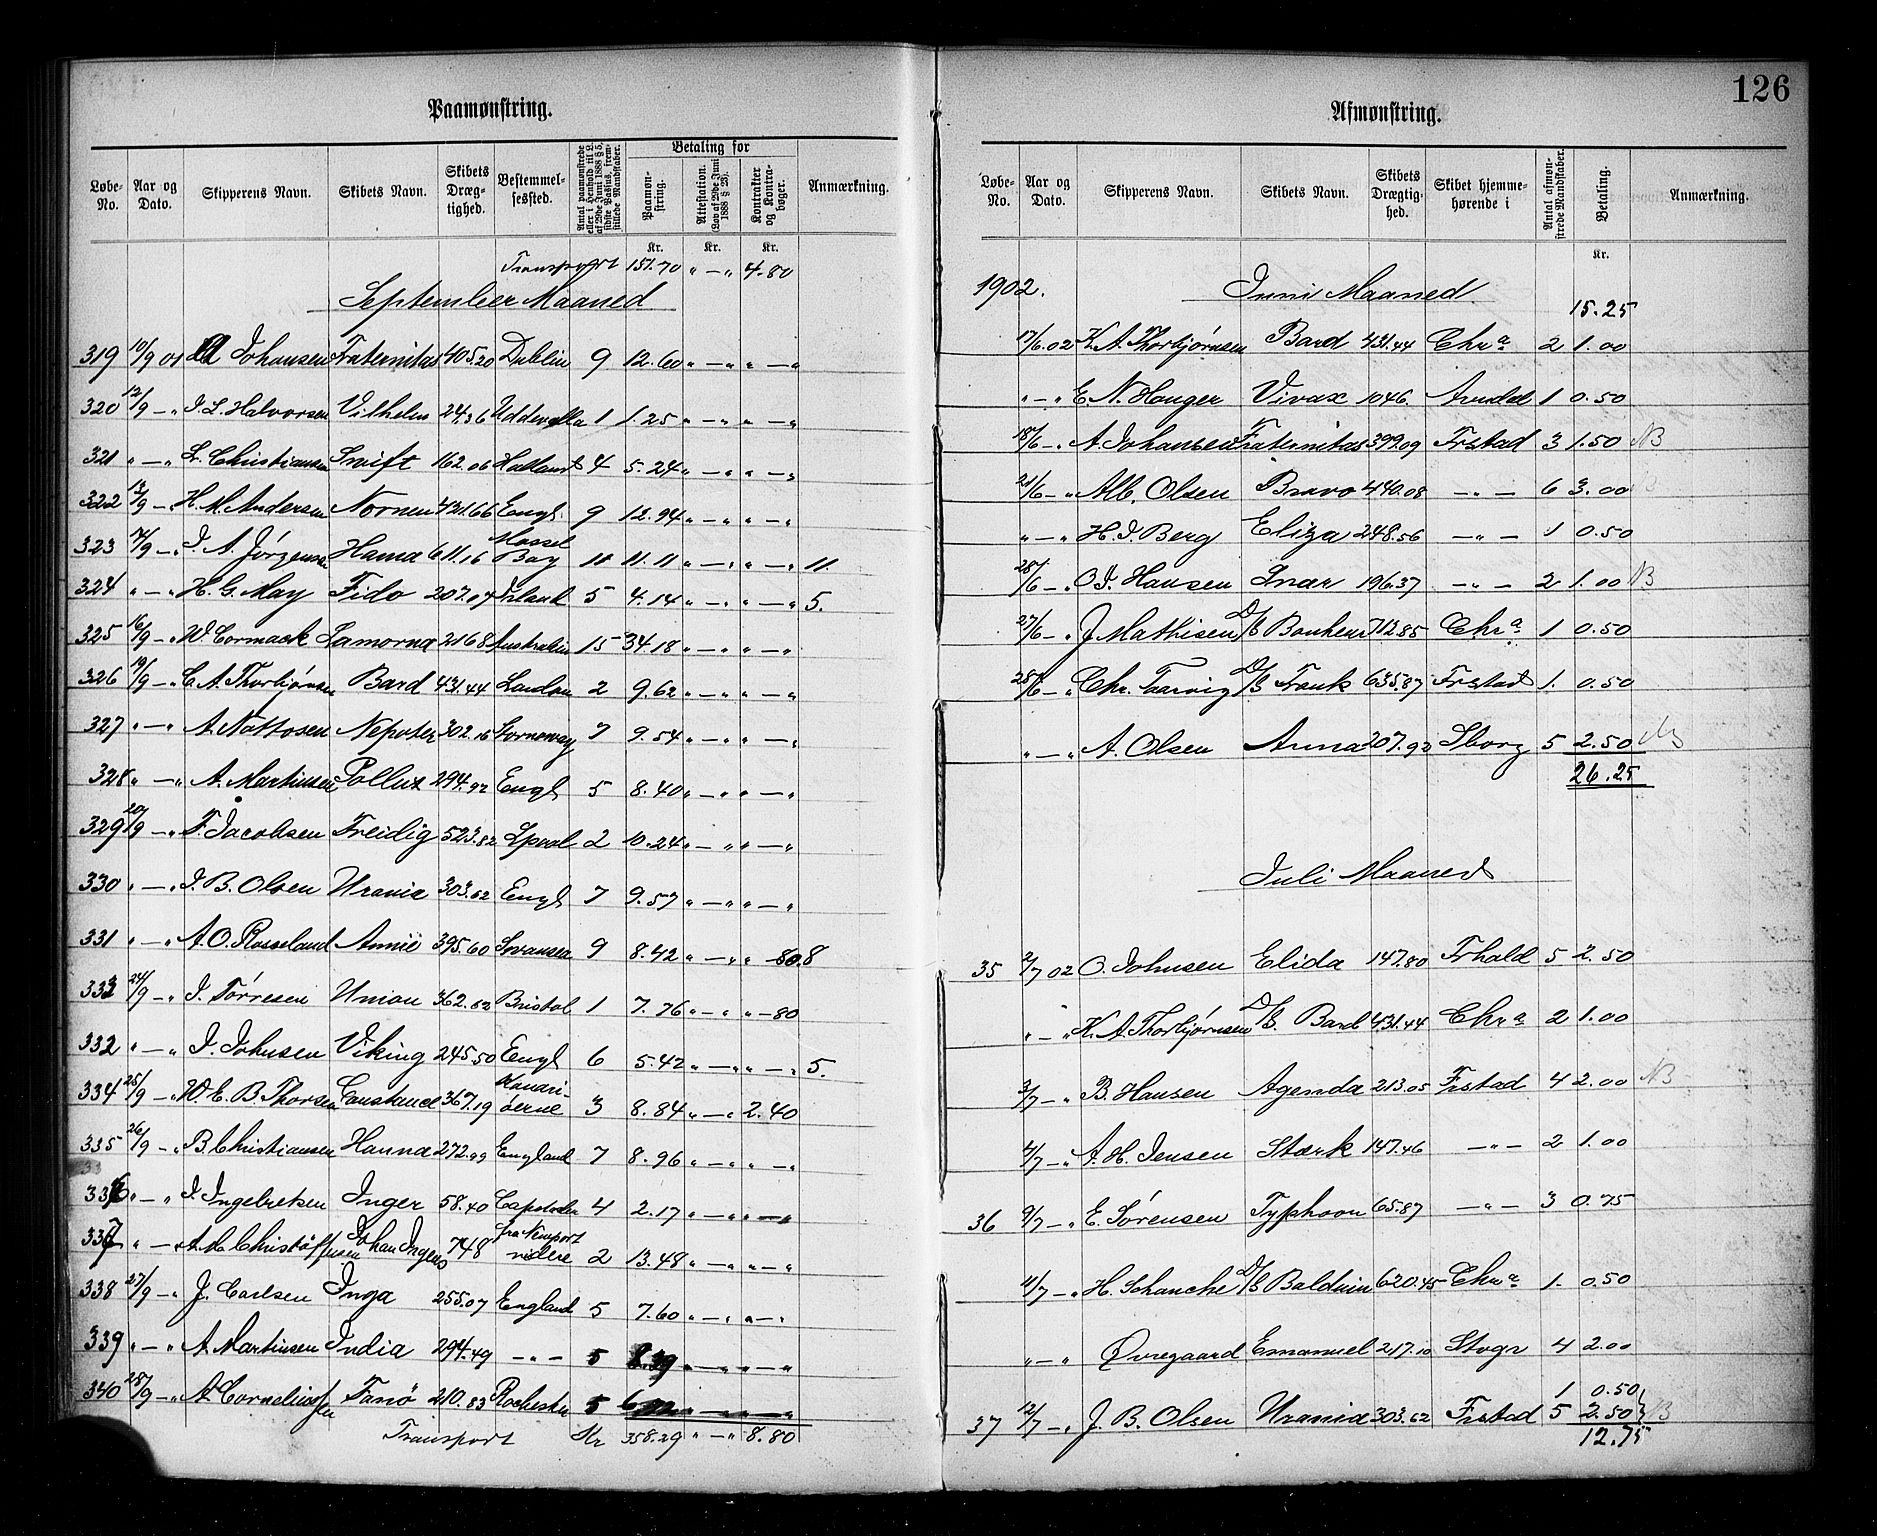 Paamønstring.
Løbe-No. Aar og Dato. Skipperens Navn. Skibets Navn. Skibets Dræg-tighed. Bestemmel-sessted. Antal paamønstrede eller i Henhold til L. af 29de Juni 1888 § 5, sidste Passus, frem-stillede Mandskaber. Betaling for Paamøn-string. Attestation. (Lov af 29de Juni 1888 § 23). Kontrakter og Kontra-bøger. Anmærkning.
Kr. Kr. Kr.
Transport 151.70 " — " 4.80
September Maaned
319 10/9 01 A Johansen Fraternitas 405.20 Dublin 9 12.60 " — " " — "
320 12/9 — " J. L. Halvorsen Vilhelm 24.36 Uddevalla 1 1.25 " — " " — "
321 " — " L. Christiansen Swift 162.06 Halland 4 5.24 " — " " — "
322 13/9 — " H. M. Andersen Nornen 421.66 Engl 9 12.94 " — " " — "
323 14/9 — " J. A. Jörgensen Hama 611.16 Mossel Bay 11 11.11 " — " " — " 11.
324 " — " H. G. May Fido 207.04 Irland 5 4.14 " — " " — " 5.
325 16/9 — " W. Cormack Lamorna 2168 Australien 15 34.18 " — " " — "
326 19/9 — " C. A. Thorbjörnsen Bard 431.44 London 2 9.62 " — " " — "
327 " — " A. Nattosen Nepoter 302.16 Stornoway 7 9.54 " — " " — "
328 " — " A. Martinsen Pollux 294.92 Engl 5 8.40 " — " " — "
329 20/9 — " F. Jacobsen Freidig 523.82 Lpool 2 10.24 " — " " — "
330 " — " J. B. Olsen Urania 303.62 Engl 7 9.57 " — " " — "
331 " — " A. O. Rosseland Annie 395.60 Swansea 9 8.42 " — " " — 80. 8
333 24/9 — " J. Törresen Union 362.82 Bristol 1 7.76 " — " " — 80
332 " — " J. Johnsen Viking 245.50 Engl 6 5.42 " — " " — " 5.
334 25/9 — " W. E. B. Thorsen Constance 367.19 Kanari-öerne 3 8.84 " — " 2.40
335 26/9 — " B. Christiansen Hanna 272.99 England 7 8.96 " — " " — "
336 " — " J. Ingebretsen Inger 58.40 4 2.17 " — " " — "
337 " — " A. M. Christoffersen Johan Ingers 748 fra Newport videre 2 13.48 " — " " — "
338 27/9 — " J. Carlsen Inga 255.07 England 5 7.60 " — " " — "
339 " — " A. Martinsen India 294.49 — " — 5 8.39 " — " " — "
340 28/9 — " A Corneliussen Fanö 210.83 Rochester 5 " — " " — "
Transport Kr 358.29 " — " 8.80
126
Afmønstring.
Løbe-No. Aar og Dato. Skipperens Navn. Skibets Navn. Skibets Drægtig-hed. Skibet hjemme-hørende i Antal afmøn-strede Mandskaber. Betaling. Anmærkning.
Kr.
1902. Juni Maaned.
15.25
17/6.02 K. A. Thorbjørnsen Bard 431.44 Chr a 2 1.00
" — " E. N. Hauger Vivax 1046. Arndal 1 0.50
18/6 — " A. Johansen Fraternitas 399.09 Frstad 3 1.50 NB
21/6 — " Alb. Olsen Bravo 440.08 — " — 6 3.00
" — " H. J. Berg Eliza 248.56 — " — 1 0.50
25/6 — " O. J. Hansen Snar 196.37 — " — 2 1.00 NB
27/6 — " J. Mathisen D/S Bonheur 712.85 Chr a 1 0.50
28/6 — " Chr. Taarvig D/S Frank 635.87 Frstad 1. 0.50
" — " A. Olsen Anna 207.92 Sborg 5 2.50 NB
26.25
Juli Maaned
35 2/7 02 O. Johnsen Elida 147.80 Frhald 5 2.50
" — " K. A. Thorbjørnsen D/S. Bard 431.44 Chr a 2 1.00
3/7 — " B. Hansen Agenda 213.05 Frstad 4 2.00 NB
4/7 — " A. H. Jensen Stærk 147.46 — " — 2 1.00
36 9/7 — " E. Sörensen Typhoon 65.87 — " — 3 0.75
11/7 — " H. Schanche D/S Baldwin 620.45 Chr a 1. 0.50
" — " Øvregaard Emanuel 217.10 Stvgr 4 2.00
1 0.50
37 12/7 — " J. B. Olsen Urania 303.62 Frstad 5 2.50 NB
12.75